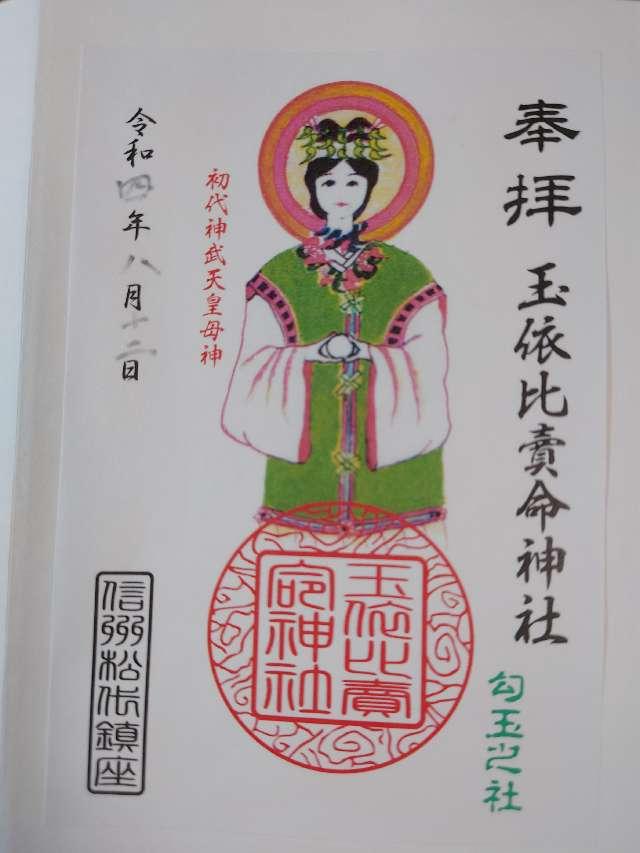 奉拝
玉依比賣命神社
勾玉之社
初代神武天皇母神
玉依比賣
命神社
令和四年八月十二日
信州松代鎮座